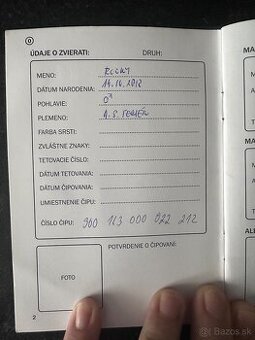 ÚDAJE O ZVIERATI: DRUH:
MENO: ROCKY
DÁTUM NARODENIA:
POHLAVIE: ♂
PLEMENO:
FARBA SRSTI:
ZVLÁŠTNE ZNAKY:
TETOVACIE ČÍSLO:
DÁTUM TETOVANIA:
DÁTUM ČIPOVANIA:
UMIESTNENIE ČIPU:
ČÍSLO ČIPU: 900 113 000 022 212
POTVRDENIE O ČIPOVANÍ:
FOTO
2
MA
DÁ
MA
ALE
Bazos.sk